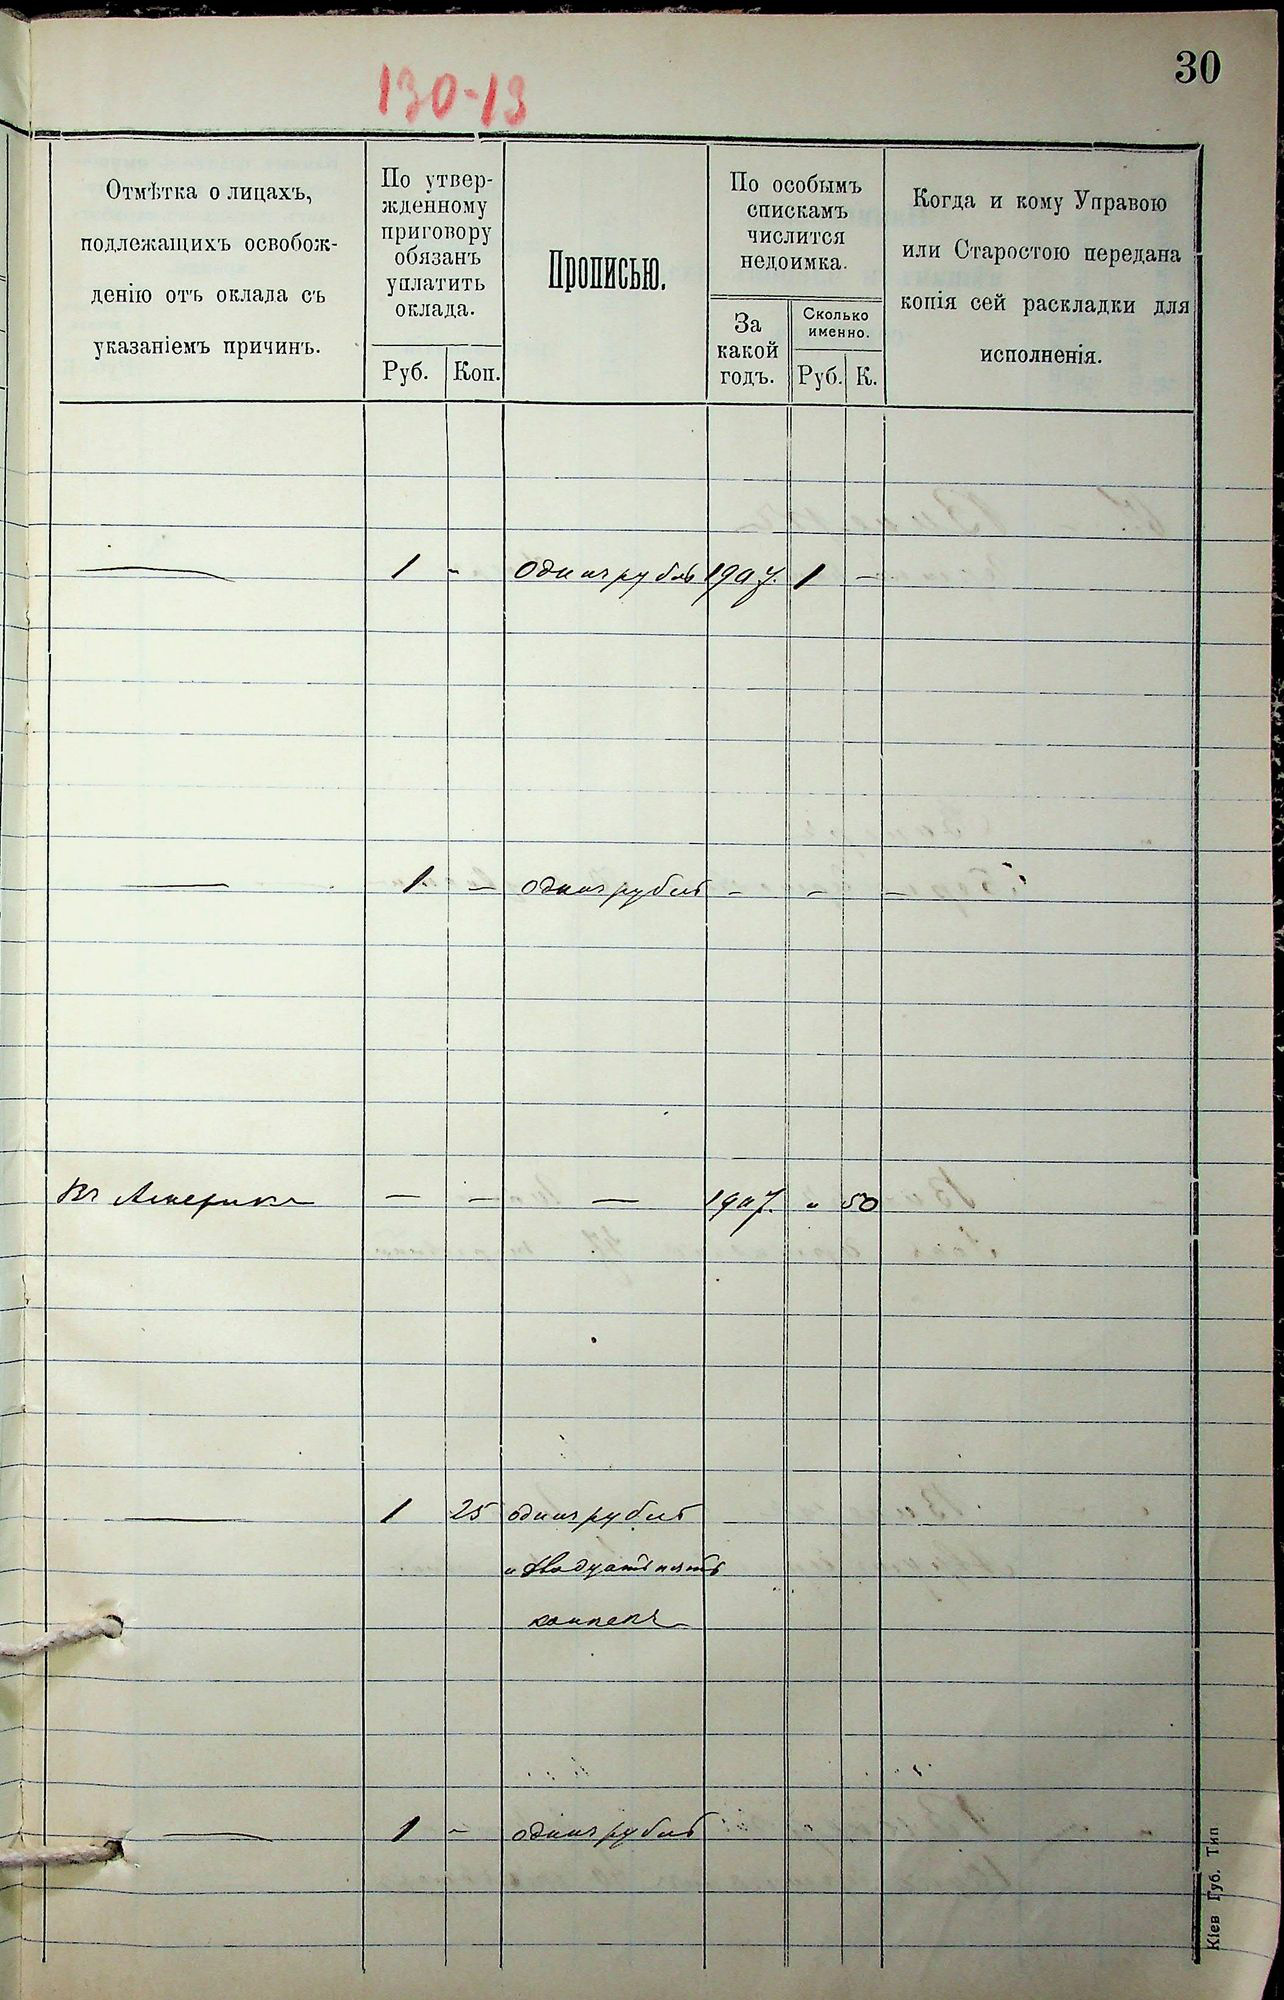 30
130-13
Отмѣтка о лицахъ,
подлежащихъ освобож-
денію отъ оклада съ
указаніемъ причинъ.
По утвер-
жденному
приговору
обязанъ
уплатить
оклада.
Руб. Коп.
Прописью.
По особымъ
спискамъ
числится
недоимка.
За
какой
годъ.
Сколько
именно.
Руб. К.
Когда и кому Управою
или Старостою передана
копія сей раскладки для
исполненія.
— 1 - Одинъ рубль 1907. 1 —
— 1. — одинъ рубль - - -
Въ Америкѣ — — — 1907. " 50
— 1 25 одинъ рубль
и двадцать пять
копѣекъ
— 1 - одинъ рубль
Кіев Губ. Тип